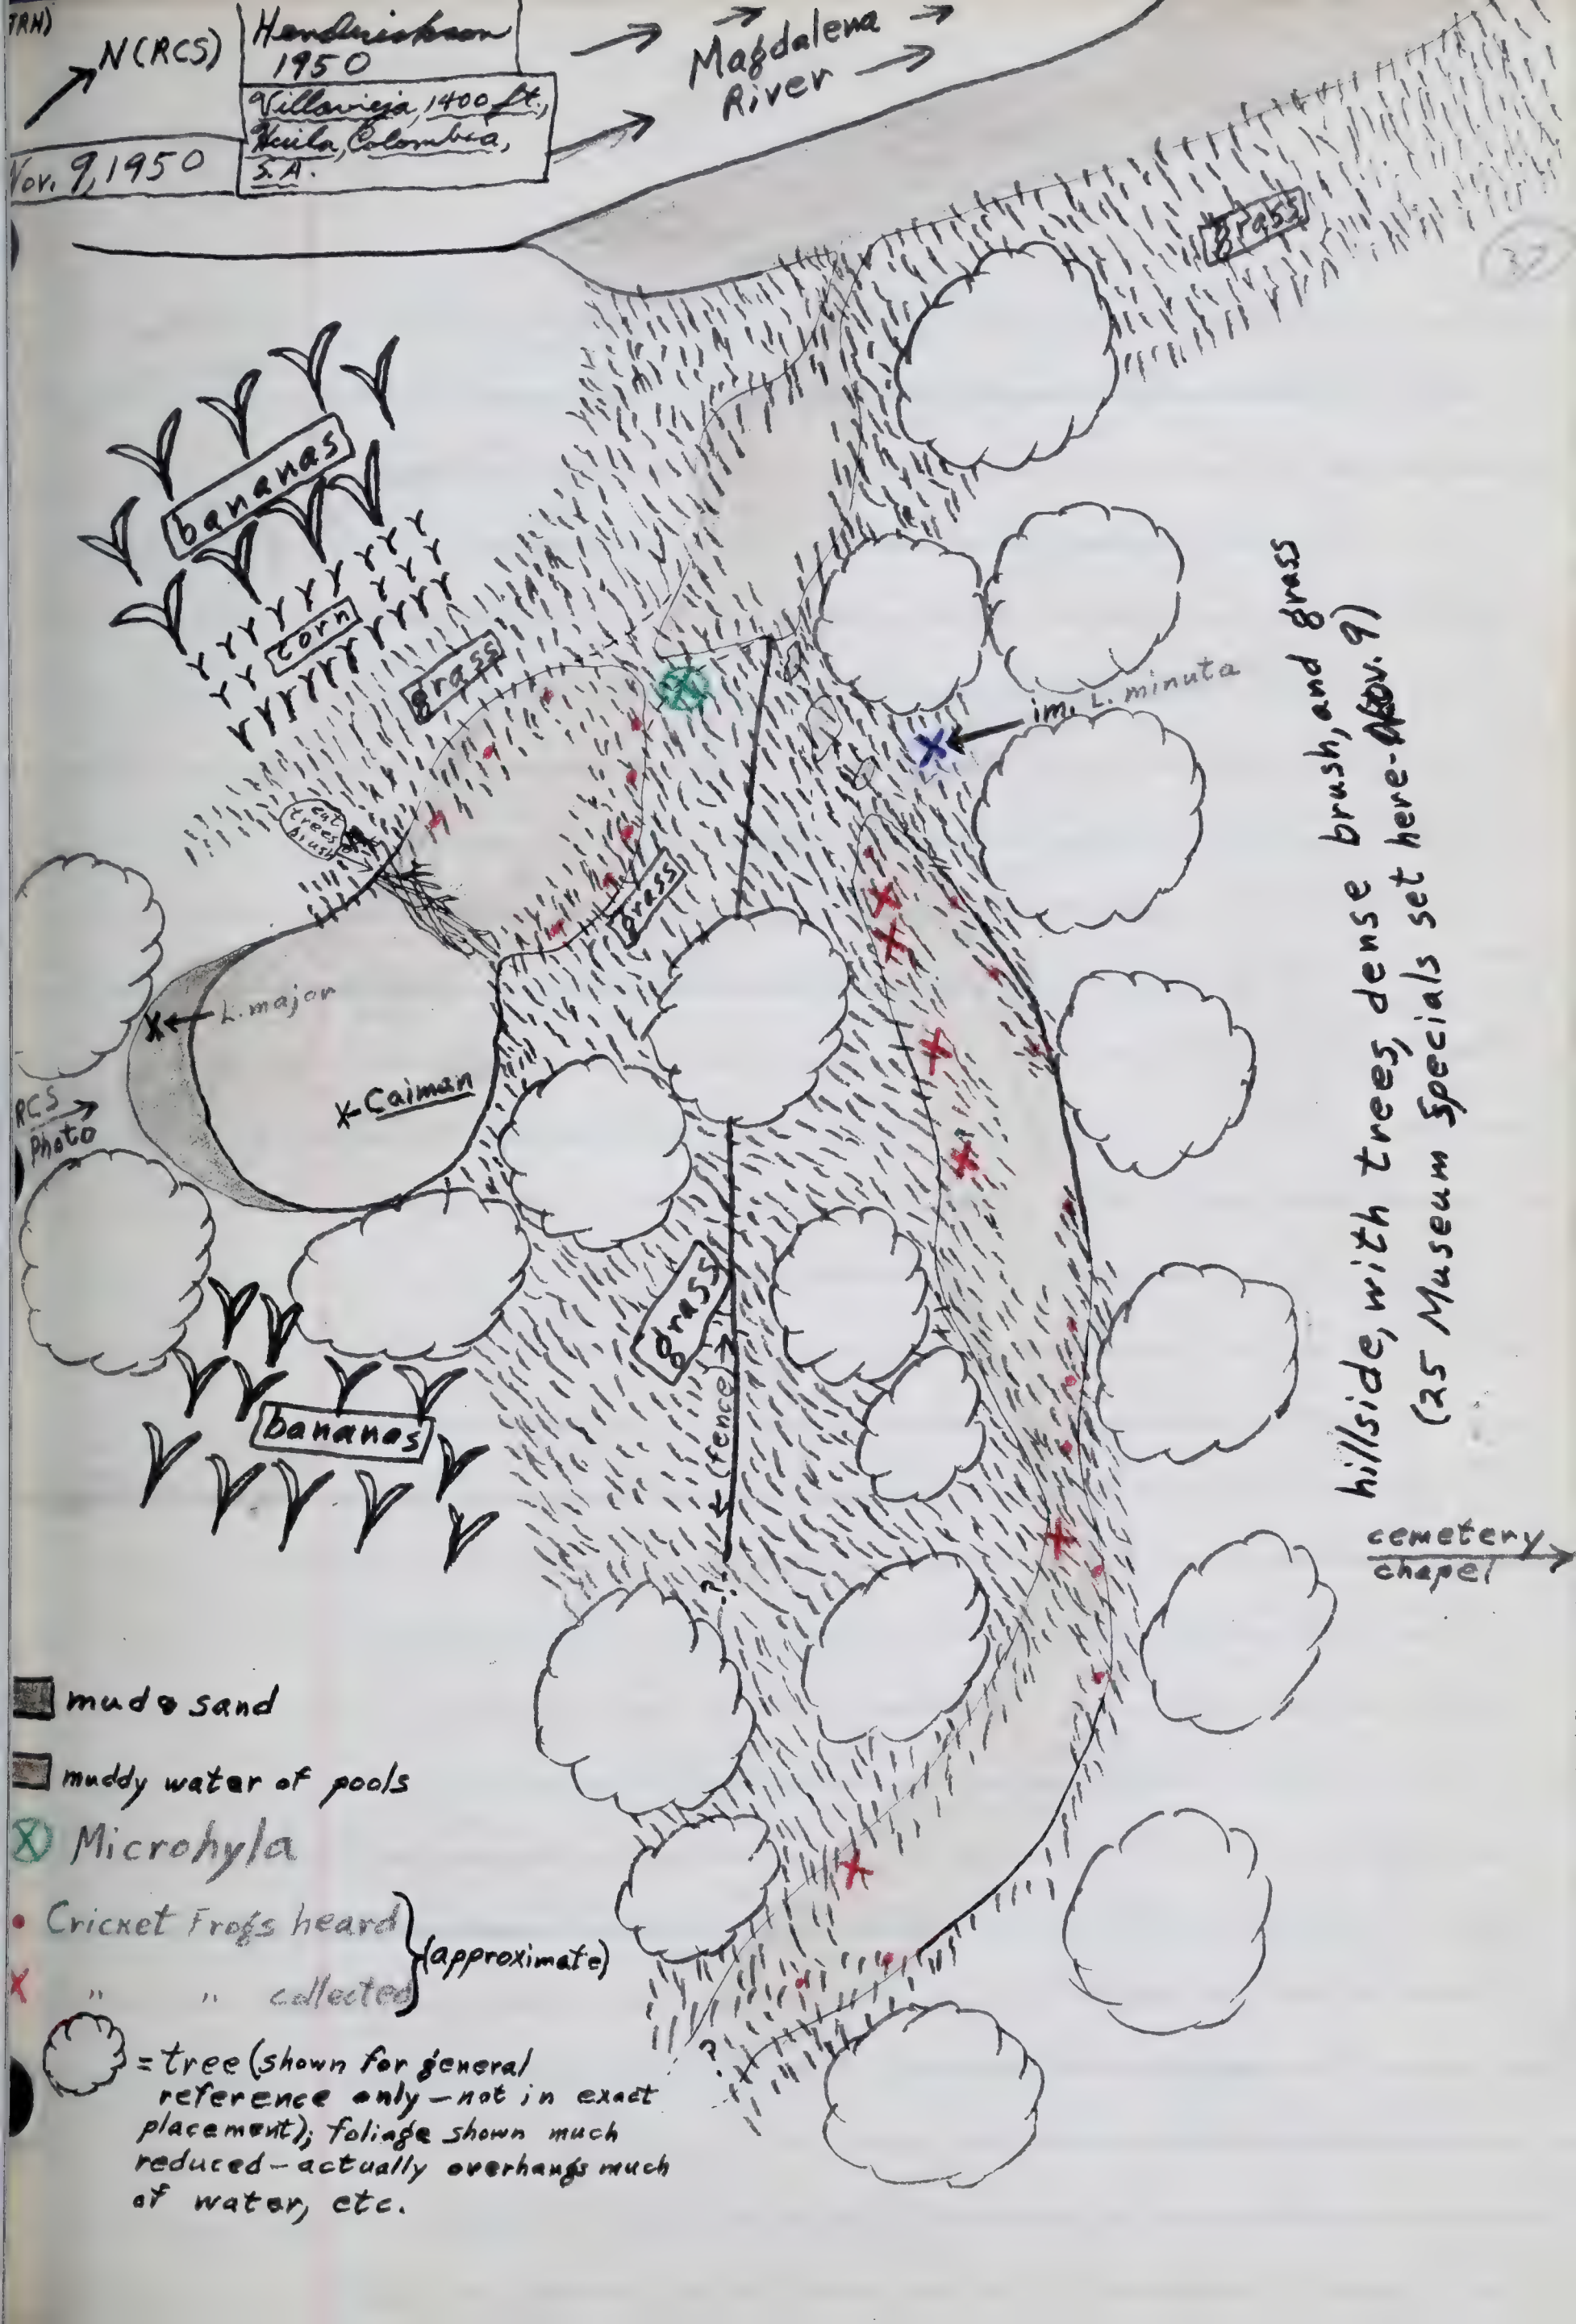 JRH)
N (RCS)
Hendrickson
1950
Villavieja, 1400 ft.,
Huila, Colombia,
S. A.
Nov. 9, 1950
Magdalena
River
grass
37
bananas
corn
grass
cut
trees
brush
im. L. minuta
grass
L. major
Caiman
RCS
Photo
grass
(fence)
bananas
?
?
hillside, with trees, dense brush, and grass
(25 Museum Specials set here - Nov. 9)
cemetery
chapel
mud & sand
muddy water of pools
Microhyla
Cricket Frogs heard
" " collected
(approximate)
= tree (shown for general
reference only — not in exact
placement); foliage shown much
reduced — actually overhangs much
of water, etc.